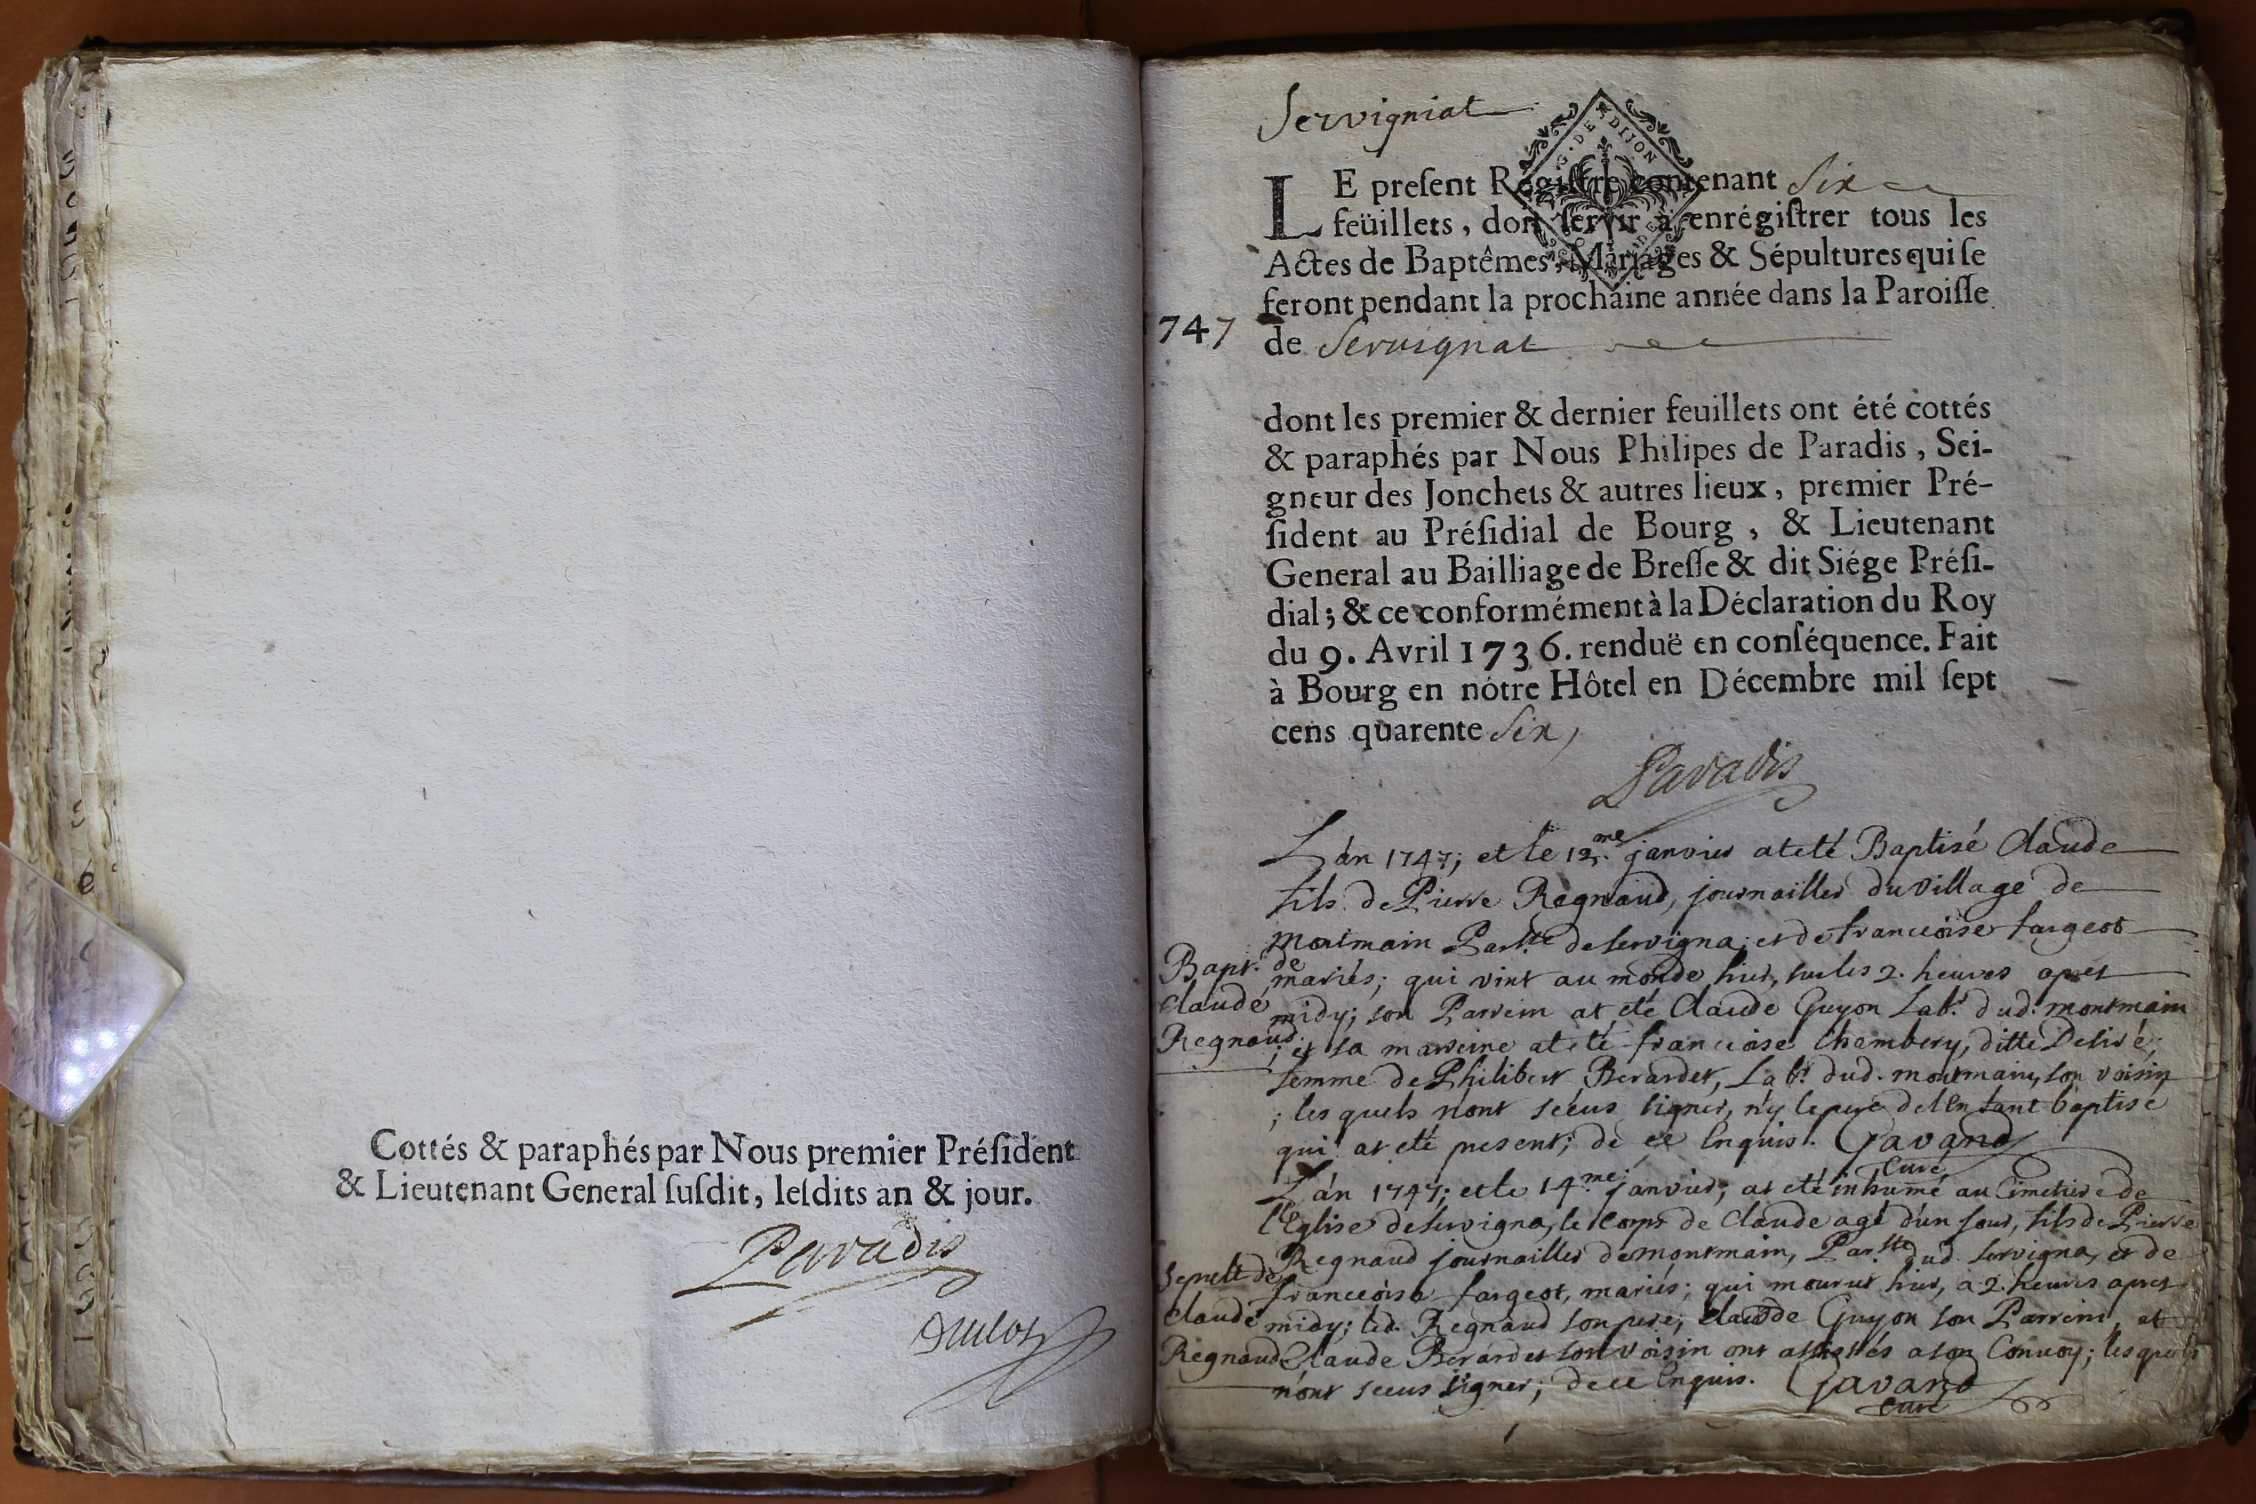 Cottés & paraphés par Nous premier Préſident
& Lieutenant General ſuſdit, leſdits an & jour.
Paradis
Servigniat
G. DE DIJON
LE preſent Régiſtre contenant Six
feüillets, doit ſervir à enrégiſtrer tous les
Actes de Baptêmes, Mariages & Sépultures qui ſe
feront pendant la prochaine année dans la Paroiſſe
747
de Servignat
dont les premier & dernier feuillets ont été cottés
& paraphés par Nous Philipes de Paradis, Sei-
gneur des Jonchets & autres lieux, premier Pré-
ſident au Préſidial de Bourg, & Lieutenant
General au Bailliage de Breſſe & dit Siége Préſi-
dial; & ce conformément à la Déclaration du Roy
du 9. Avril 1736. renduë en conſéquence. Fait
à Bourg en nótre Hôtel en Décembre mil ſept
cens quarente Six,
Paradis
L'an 1747; et le 12.me janvier at eté Baptisé Claude
fils de Pierre Regnaud, journaillier du village de
montmain Par.sse de servigna; et de francoise fargeot
mariés; qui vint au monde hier, sur les 2. heures apres
midy; son Parrein at eté Claude Guyon Lab.r dud. montmain
; et sa marreine at eté francoise Chambery, ditte Desiré;
femme de Philibert Berardet, Lab.r dud. montmain, son voisin
; les quels n'ont sceus signer, n'y le pere de l'enfant baptisé
qui at eté present; de ce Enquis. Gavand
Curé
Bapt. de
Claude
Regnaud
L'an 1747; et le 14.me janvier, at eté inhumé au Cimetiere de
l'Eglise de servigna, le Corps de Claude agé d'un jour, fils de Pierre
Regnaud journaillier de montmain, Par.sse dud. servigna, et de
francoise fargeot, mariés; qui mourut hier, a 2. heures apres
midy; led. Regnaud son pere, Claude Guyon son Parrein, et
Claude Berardet son voisin ont assistés a son Convoy; les quels
n'ont sceus signer; de ce Enquis. Gavand
Curé
Sepult. de
Claude
Regnaud